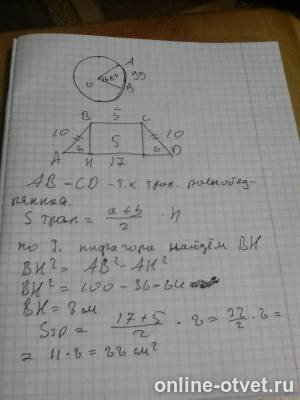 A
O 60° 99
B
B 5 C
10 5 10
A 6 H 17 6 D
AB – CD – т.к трап. равнобед-
ренная.
S трап = a+b/2 · h
по т. пифагора найдём BH
BH² = AB² – AH²
BH² = 100 – 36 = 64
BH = 8 см
Sтр. = 17+5/2 · 8 = 22/2 · 8 =
= 11 · 8 = 88 см²
online-otvet.ru